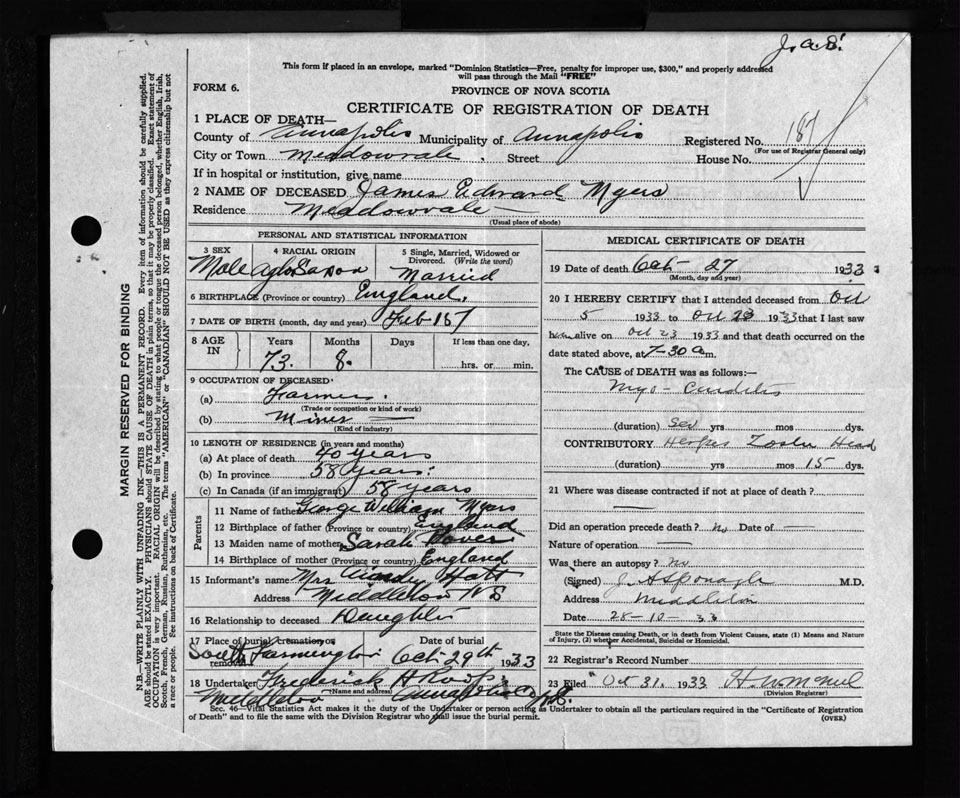 J. A. S.
This form if placed in an envelope, marked "Dominion Statistics—Free, penalty for improper use, $300," and properly addressed
will pass through the Mail "FREE"
FORM 6.
PROVINCE OF NOVA SCOTIA
CERTIFICATE OF REGISTRATION OF DEATH
1 PLACE OF DEATH—
County of Annapolis Municipality of Annapolis Registered No. 187
(For use of Registrar General only)
City or Town Meadowvale Street House No.
If in hospital or institution, give name
2 NAME OF DECEASED James Edward Myers
Residence Meadowvale
(Usual place of abode)
MARGIN RESERVED FOR BINDING
N.B.—WRITE PLAINLY WITH UNFADING INK—THIS IS A PERMANENT RECORD. Every item of information should be carefully supplied.
AGE should be stated EXACTLY. PHYSICIANS should STATE CAUSE OF DEATH in plain terms, so that it may be properly classified. Exact statement of
OCCUPATION is very important. RACIAL ORIGIN will be described by stating to what people or tongue the deceased person belonged, whether English, Irish,
Scotch, French, German, Russian, Ruthenian, etc. The terms "AMERICAN" or "CANADIAN" SHOULD NOT BE USED as they express citizenship but not
a race or people. See instructions on back of Certificate.
PERSONAL AND STATISTICAL INFORMATION
3 SEX 4 RACIAL ORIGIN 5 Single, Married, Widowed or
Divorced. (Write the word)
Male Aglo Saxon Married
6 BIRTHPLACE (Province or country) England,
7 DATE OF BIRTH (month, day and year) Feb 157
8 AGE IN Years Months Days If less than one day,
73. 8. hrs. or min.
9 OCCUPATION OF DECEASED
(a) Farmer.
(Trade or occupation or kind of work)
(b) Miner
(Kind of industry)
10 LENGTH OF RESIDENCE (in years and months)
(a) At place of death 40 years
(b) In province 58 years.
(c) In Canada (if an immigrant) 58 years
Parents
11 Name of father George William Myers
12 Birthplace of father (Province or country) England
13 Maiden name of mother Sarah
14 Birthplace of mother (Province or country) England
15 Informant's name Mrs Hatt
Address Middleton N S
16 Relationship to deceased Daughter
17 Place of burial cremation or removal Date of burial
South Farmington Oct 29th 1933
18 Undertaker Frederick H Roop
(Name and address)
Middleton Annapolis Co N.S.
MEDICAL CERTIFICATE OF DEATH
19 Date of death Oct 27 1933
(Month, day and year)
20 I HEREBY CERTIFY that I attended deceased from Oct
5 1933 to Oct 23 1933 that I last saw
him alive on Oct 23 1933 and that death occurred on the
date stated above, at 7-30 a m.
The CAUSE of DEATH was as follows:—
Myo-Carditis
(duration) Sev yrs mos dys.
CONTRIBUTORY Herpes Zoster Head
(duration) yrs mos 15 dys.
21 Where was disease contracted if not at place of death?
Did an operation precede death? no Date of —
Nature of operation —
Was there an autopsy? no
(Signed) J A Sponagle M.D.
Address Middleton
Date 28-10-33
State the Disease causing Death, or in death from Violent Causes, state (1) Means and Nature
of Injury, (2) whether Accidental, Suicidal or Homicidal.
22 Registrar's Record Number
23 Filed Oct 31. 1933
(Division Registrar)
Sec. 46—Vital Statistics Act makes it the duty of the Undertaker or person acting as Undertaker to obtain all the particulars required in the "Certificate of Registration
of Death" and to file the same with the Division Registrar who shall issue the burial permit. (OVER)